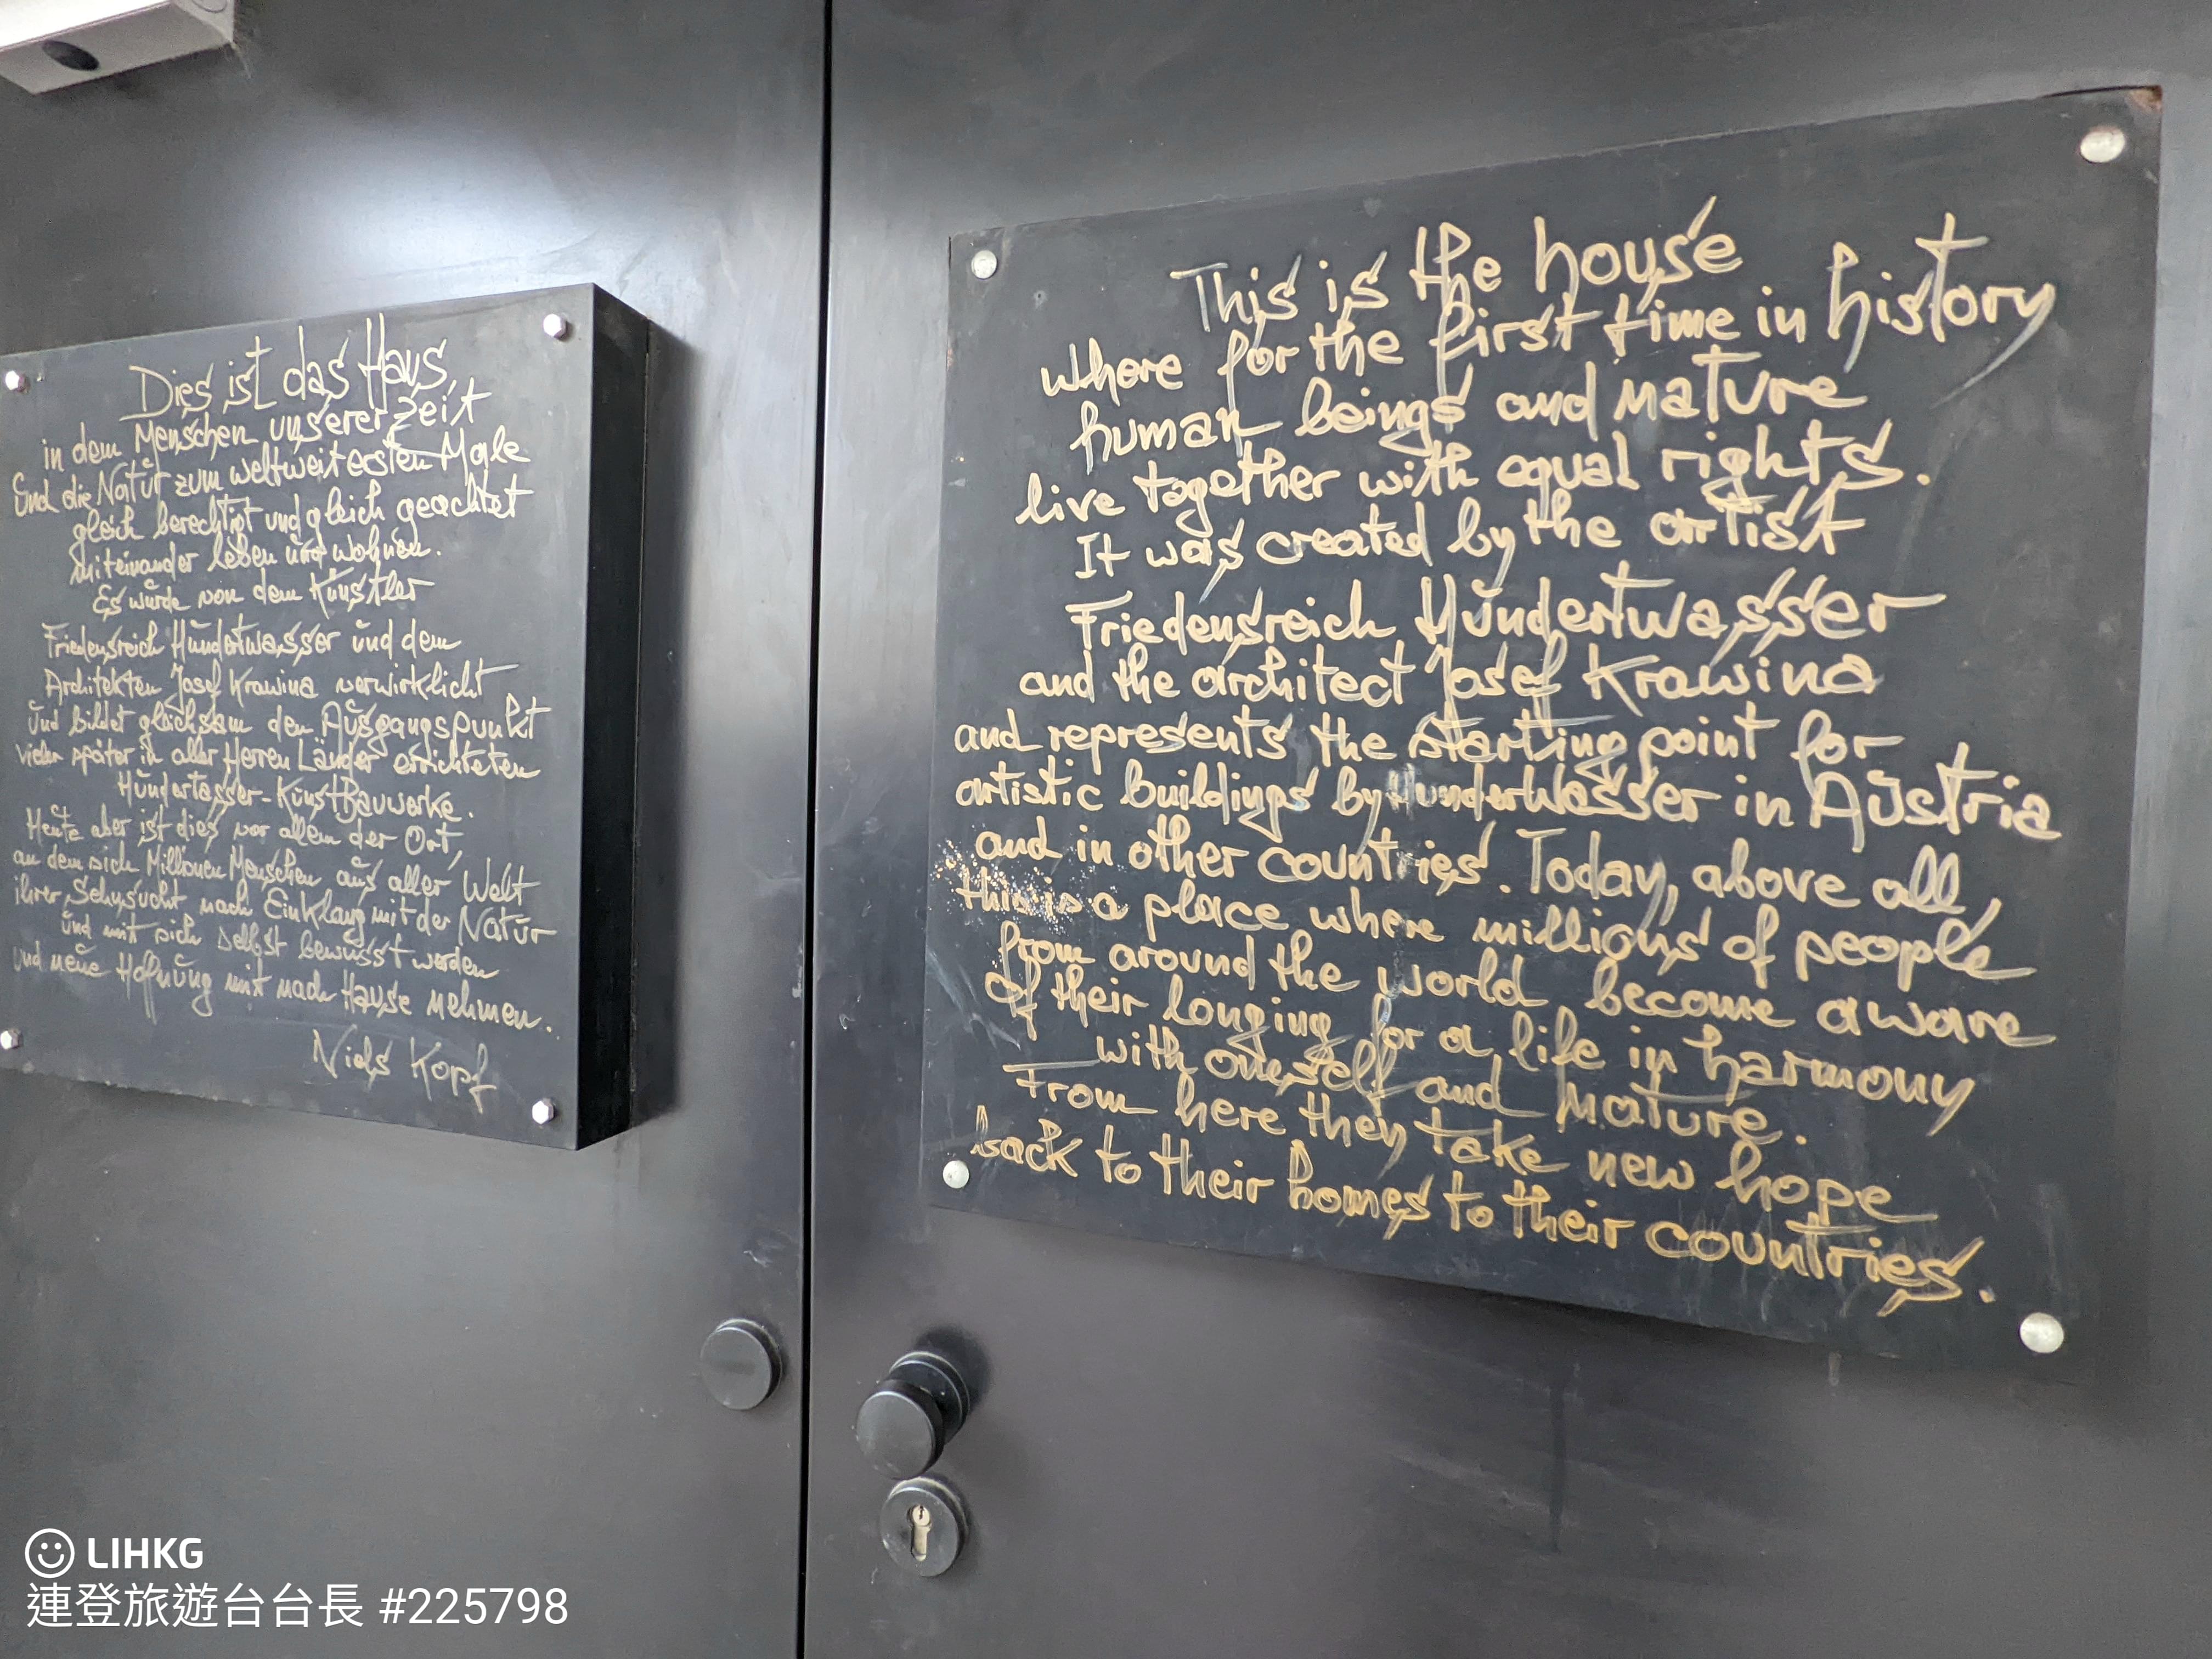 Dies ist das Haus,
in dem Menschen unserer Zeit
und die Natur zum weltweit ersten Male
gleich berechtigt und gleich geachtet
miteinander leben und wohnen.
Es wurde von dem Künstler
Friedensreich Hundertwasser und dem
Architekten Josef Krawina verwirklicht
und bildet gleichsam den Ausgangspunkt
vieler später in aller Herren Länder errichteten
Hundertasser-KunstBauwerke.
Heute aber ist dies vor allem der Ort,
an dem sich Millionen Menschen aus aller Welt
ihrer Sehnsucht nach Einklang mit der Natur
und mit sich selbst bewusst werden
und neue Hoffnung mit nach Hause nehmen.
Niels Kopf
This is the house
where for the first time in history
human beings and nature
live together with equal rights.
It was created by the artist
Friedensreich Hundertwasser
and the architect Josef Krawina
and represents the starting point for
artistic buildings by Hunderwasser in Austria
and in other countries. Today, above all,
this is a place where millions of people
from around the world become aware
of their longing for a life in harmony
with oneself and nature.
From here they take new hope
back to their homes to their countries.
LIHKG
連登旅遊台台長 #225798